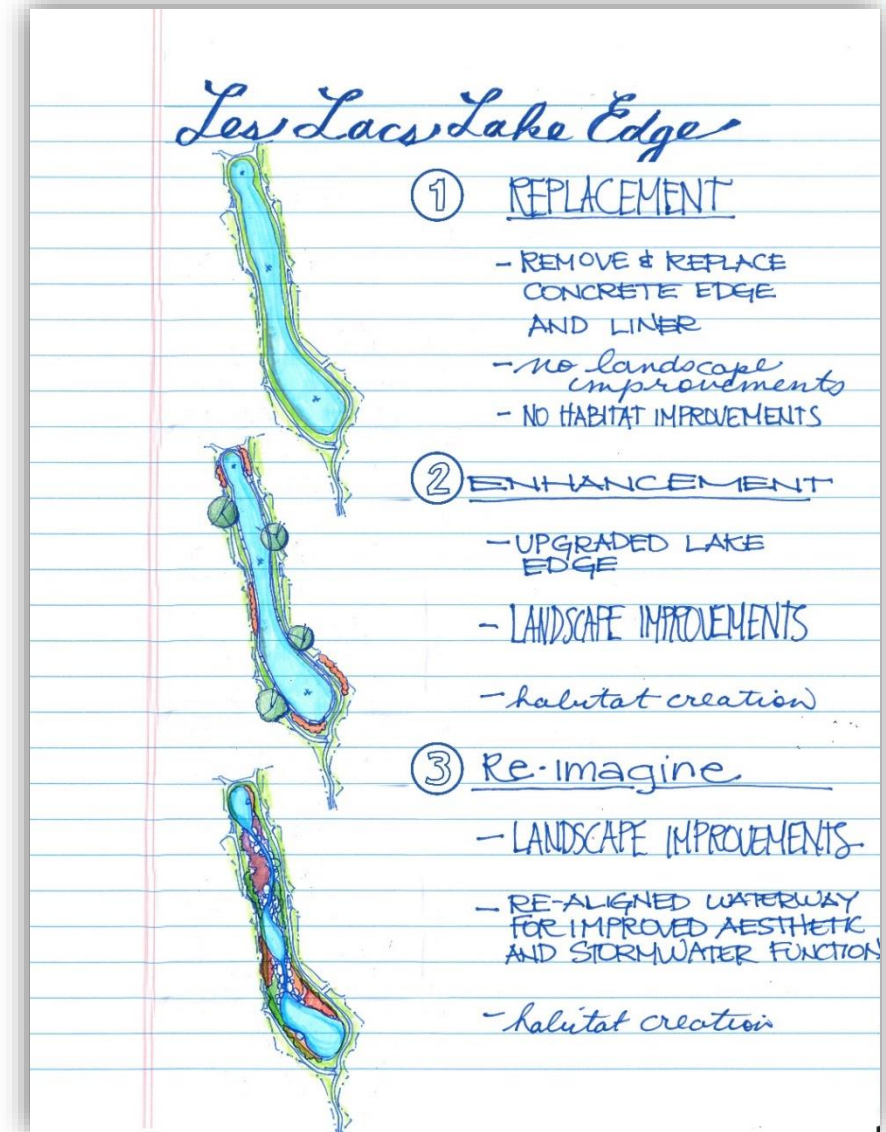 Les Lacs Lake Edge
① REPLACEMENT
- REMOVE & REPLACE
CONCRETE EDGE
AND LINER
- no landscape
improvements
- NO HABITAT IMPROVEMENTS
② ENHANCEMENT
- UPGRADED LAKE
EDGE
- LANDSCAPE IMPROVEMENTS
- habitat creation
③ Re-Imagine
- LANDSCAPE IMPROVEMENTS
- RE-ALIGNED WATERWAY
FOR IMPROVED AESTHETIC
AND STORMWATER FUNCTION
- habitat creation